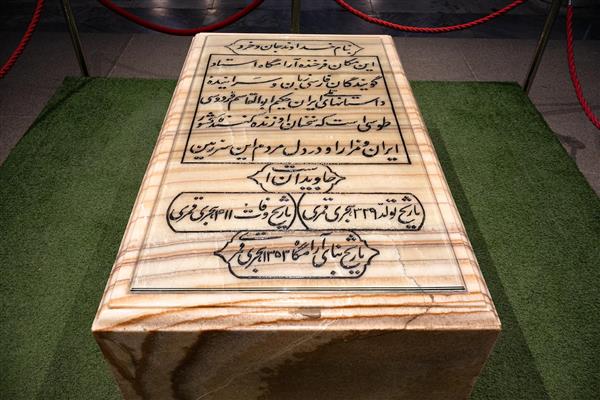 بنام خداوند جان و خرد
این مکان فرخنده آرامگاه استاد
گویندگان فارسی زبان و سراینده
داستانهای ملی ایران حکیم ابوالقاسم فردوسی
طوسی است که سخنان او زنده کننده کشور
ایران و مزار او در دل مردم این سرزمین
جاویدان است
تاریخ تولد ۳۲۹ هجری قمری
تاریخ وفات ۴۱۱ هجری قمری
تاریخ بنای آرامگاه ۱۳۵۳ هجری قمری است